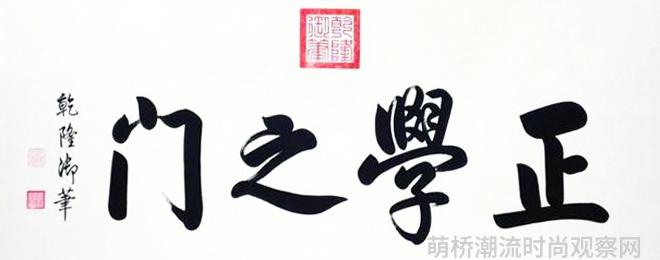 乾隆御筆
正學之門
乾隆御筆
萌桥潮流时尚观察网